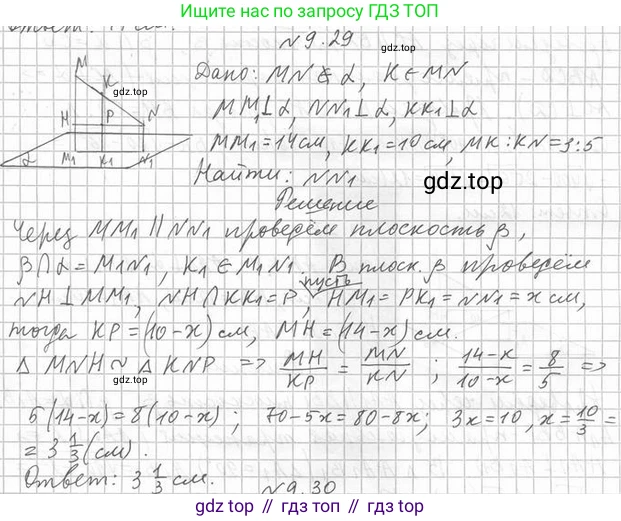 Ищите решение по запросу ГДЗ ТОП
№9.29
gdz.top
Дано: MN ∉ α, K ∈ MN
MM₁⊥α, NN₁⊥α, KK₁⊥α
MM₁=14 см, KK₁=10 см, MK:KN=3:5
Найти: NN₁
gdz.top
Решение
M
K
gdz.top
H P N
α M₁ K₁ N₁
Через MM₁ ∥ NN₁ проведём плоскость β,
β∩α=M₁N₁, K₁∈M₁N₁. В плоск. β проведём
NH⊥MM₁, NH∩KK₁=P, пусть HM₁=PK₁=NN₁=x см,
тогда KP=(10-x) см, MH=(14-x) см.
△MNH ~ △KNP => MH/KP = MN/KN ; 14-x/10-x = 8/5 =>
gdz.top
5(14-x)=8(10-x); 70-5x=80-8x; 3x=10, x=10/3=
=3 1/3 (см).
Ответ: 3 1/3 см.
gdz.top
№9.30
gdz.top // gdz.top // gdz.top // gdz.top